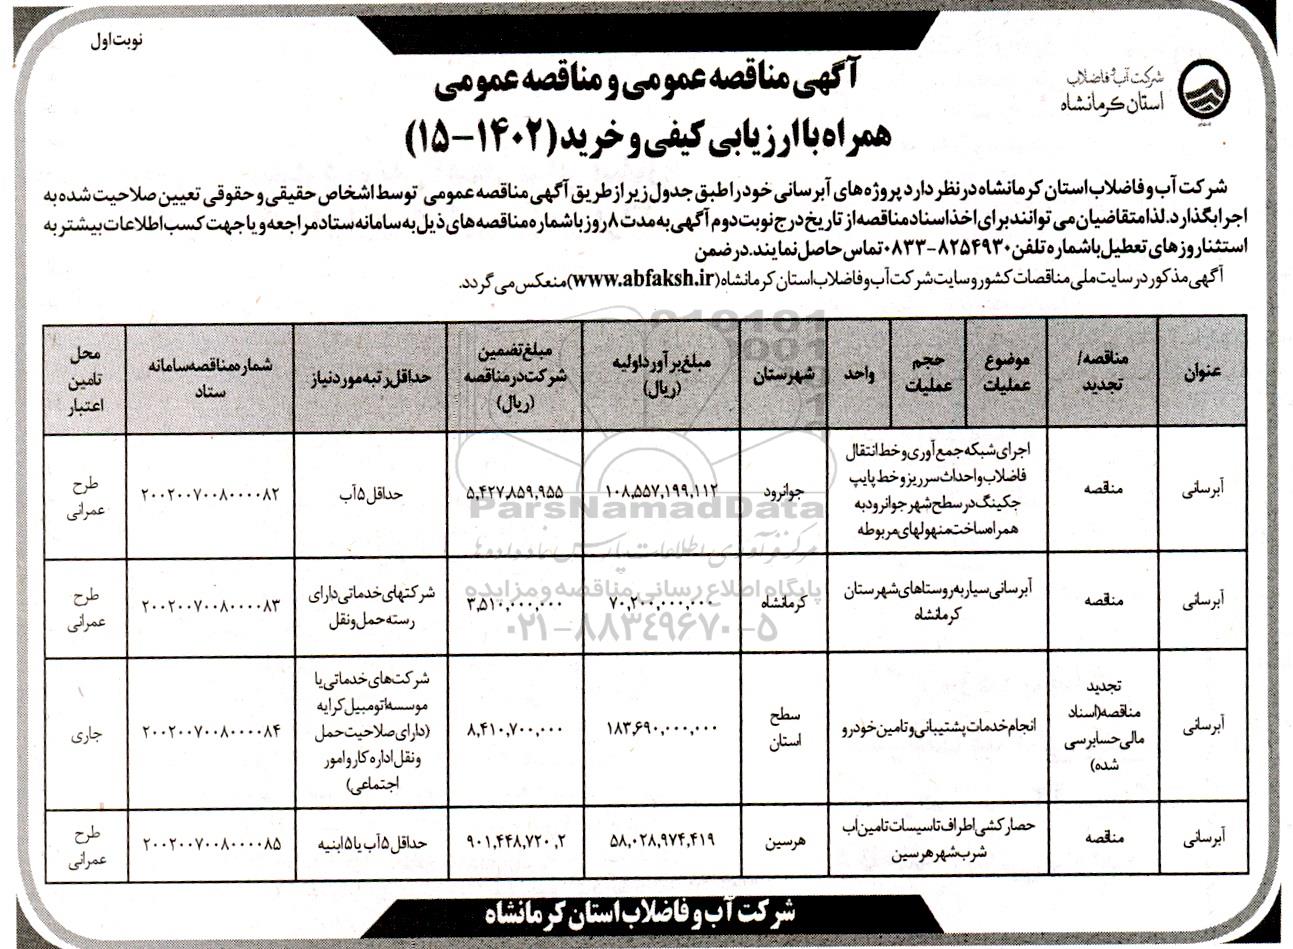 نوبت اول
شرکت آب و فاضلاب
استان کرمانشاه
آگهی مناقصه عمومی و مناقصه عمومی
همراه با ارزیابی کیفی و خرید (۱۴۰۲-۱۵)
شرکت آب و فاضلاب استان کرمانشاه در نظر دارد پروژه های آبرسانی خود را طبق جدول زیر از طریق آگهی مناقصه عمومی توسط اشخاص حقیقی و حقوقی تعیین صلاحیت شده به
اجرا بگذارد. لذا متقاضیان می توانند برای اخذ اسناد مناقصه از تاریخ درج نوبت دوم آگهی به مدت ۸ روز با شماره مناقصه های ذیل به سامانه ستاد مراجعه و یا جهت کسب اطلاعات بیشتر به
استثنا روزهای تعطیل با شماره تلفن ۸۲۵۴۹۳۰-۰۸۳۳ تماس حاصل نمایند. در ضمن
آگهی مذکور در سایت ملی مناقصات کشور و سایت شرکت آب و فاضلاب استان کرمانشاه (www.abfaksh.ir) منعکس می گردد.
عنوان | مناقصه/ تجدید | موضوع عملیات | حجم عملیات | واحد | شهرستان | مبلغ برآورد اولیه (ریال) | مبلغ تضمین شرکت در مناقصه (ریال) | حداقل رتبه مورد نیاز | شماره مناقصه سامانه ستاد | محل تامین اعتبار
آبرسانی | مناقصه | اجرای شبکه جمع آوری و خط انتقال فاضلاب و احداث سرریز و خط پایپ جکینگ در سطح شهر جوانرود به همراه ساخت منهولهای مربوطه | جوانرود | ۱۰۸,۵۵۷,۱۹۹,۱۱۲ | ۵,۴۲۷,۸۵۹,۹۵۵ | حداقل ۵ آب | ۲۰۰۲۰۰۷۰۰۸۰۰۰۰۸۲ | طرح عمرانی
آبرسانی | مناقصه | آبرسانی سیار به روستاهای شهرستان کرمانشاه | کرمانشاه | ۷۰,۲۰۰,۰۰۰,۰۰۰ | ۳,۵۱۰,۰۰۰,۰۰۰ | شرکتهای خدماتی دارای رسته حمل و نقل | ۲۰۰۲۰۰۷۰۰۸۰۰۰۰۸۳ | طرح عمرانی
آبرسانی | تجدید مناقصه (اسناد مالی حسابرسی شده) | انجام خدمات پشتیبانی و تامین خودرو | سطح استان | ۱۸۳,۶۹۰,۰۰۰,۰۰۰ | ۸,۴۱۰,۷۰۰,۰۰۰ | شرکت های خدماتی یا موسسه اتومبیل کرایه (دارای صلاحیت حمل و نقل اداره کار و امور اجتماعی) | ۲۰۰۲۰۰۷۰۰۸۰۰۰۰۸۴ | جاری
آبرسانی | مناقصه | حصارکشی اطراف تاسیسات تامین اب شرب شهر هرسین | هرسین | ۵۸,۰۲۸,۹۷۴,۴۱۹ | ۹۰۱,۴۴۸,۷۲۰ ,۲ | حداقل ۵ آب یا ۵ ابنیه | ۲۰۰۲۰۰۷۰۰۸۰۰۰۰۸۵ | طرح عمرانی
شرکت آب و فاضلاب استان کرمانشاه
ParsNamadData
مرکز فرآوری اطلاعات پارس نماد داده ها
پایگاه اطلاع رسانی مناقصه و مزایده
۰۲۱-۸۸۳۴۹۶۷۰-۵